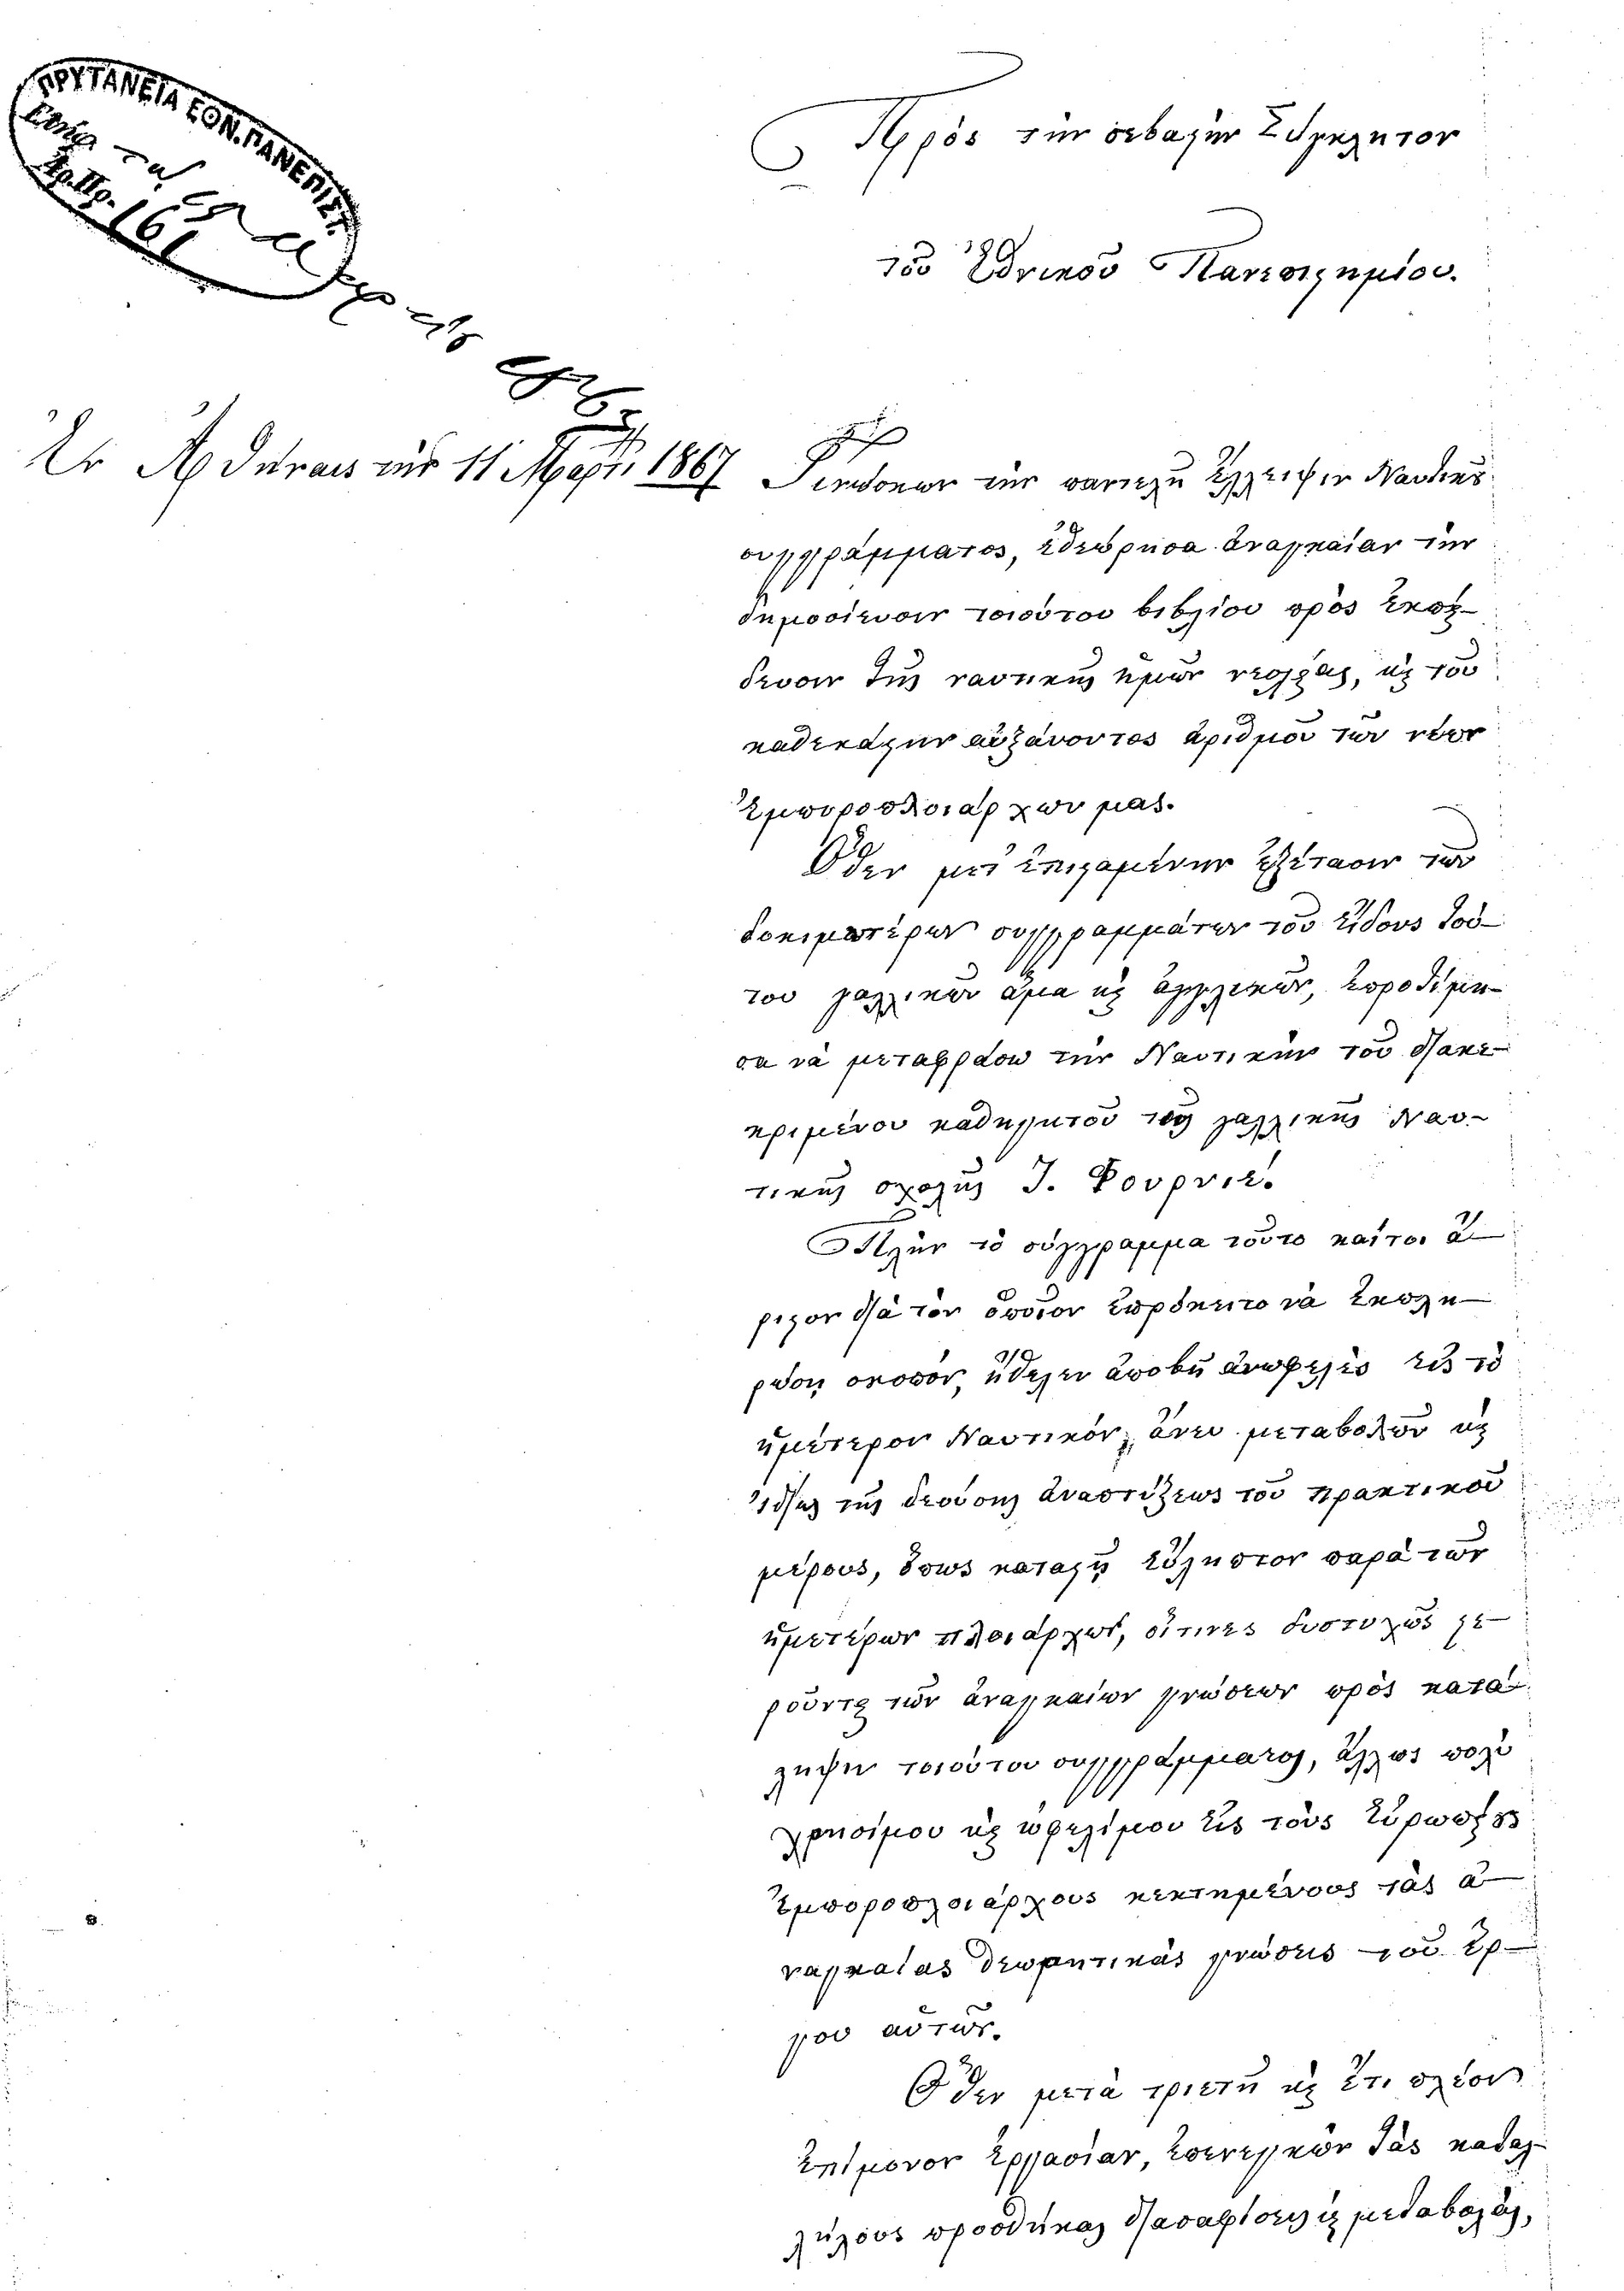 ΠΡΥΤΑΝΕΙΑ ΕΘΝ. ΠΑΝΕΠΙΣΤ.
Ἀρ. Πρ. 161
Πρὸς τὴν σεβαστὴν Σύγκλητον
τοῦ Ἐθνικοῦ Πανεπιστημίου.
Ἐν Ἀθήναις τὴν 11 Μαρτ. 1867
Γινώσκων τὴν παντελῆ ἔλλειψιν Ναυτικοῦ
συγγράμματος, ἐθεώρησα ἀναγκαίαν τὴν
δημοσίευσιν τοιούτου βιβλίου πρὸς ἐκπαί-
δευσιν τῆς ναυτικῆς ἡμῶν νεολαίας, καὶ τοῦ
καθεκάστην αὐξάνοντος ἀριθμοῦ τῶν νέων
Ἐμποροπλοιάρχων μας.
Ὅθεν μετ' ἐπισταμένην ἐξέτασιν τῶν
δοκιμωτέρων συγγραμμάτων τοῦ εἴδους τού-
του γαλλικῶν ἅμα καὶ ἀγγλικῶν, ἐπροθυμή-
θην νὰ μεταφράσω τὴν Ναυτικὴν τοῦ διακε-
κριμένου καθηγητοῦ τῆς γαλλικῆς Ναυ-
τικῆς σχολῆς Ι. Φουρνιέ.
Πλὴν τὸ σύγγραμμα τοῦτο καίτοι ἄ-
ριστον διὰ τὸν ὁποῖον ἐπρόκειτο νὰ ἐκπλη-
ρώσῃ σκοπόν, ἤθελεν ἀποβῆ ἀνωφελὲς εἰς τὸ
ἡμέτερον Ναυτικόν, ἄνευ μεταβολῶν καὶ
ἰδίως τῆς δεούσης ἀναπτύξεως τοῦ πρακτικοῦ
μέρους, ὅπως καταστῇ εὔληπτον παρὰ τῶν
ἡμετέρων πλοιάρχων, οἵτινες δυστυχῶς στε-
ροῦνται τῶν ἀναγκαίων γνώσεων πρὸς κατά-
ληψιν τοιούτου συγγράμματος, ἄλλως πολὺ
χρησίμου καὶ ὠφελίμου εἰς τοὺς Εὐρωπαίους
Ἐμποροπλοιάρχους κεκτημένους τὰς ἀ-
ναγκαίας θεωρητικὰς γνώσεις τοῦ ἔρ-
γου αὐτῶν.
Ὅθεν μετὰ τριετῆ καὶ ἔτι πλέον
ἐπίμονον ἐργασίαν, ἐπενεγκὼν τὰς καταλ-
λήλους προσθήκας διασαφήσεις καὶ μεταβολάς,